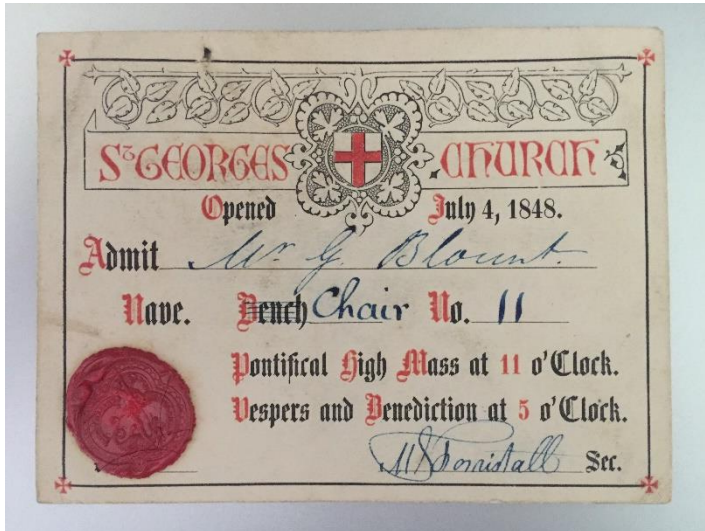 St GEORGES CHURCH
Opened July 4, 1848.
Admit Mr G. Blount.
Nave. Bench Chair No. 11
Pontifical High Mass at 11 o'Clock.
Vespers and Benediction at 5 o'Clock.
Sec.